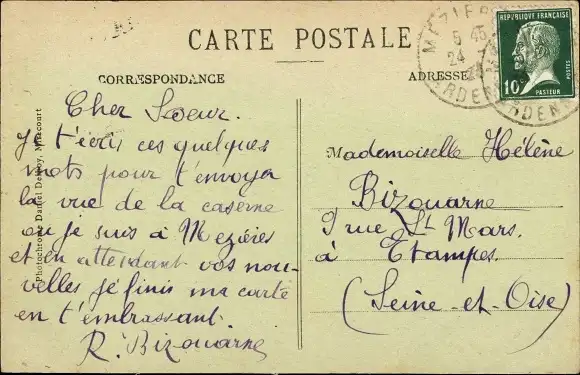 CARTE POSTALE
CORRESPONDANCE
Cher Soeur.
Je t'écris ces quelques
mots pour t'envoyer
la vue de la caserne
ou je suis à Mezières
et en attendant vos nou-
velles je finis ma carte
en t'embrassant.
R. Bizouarne
Photochrome Daniel
ADRESSE
Mademoiselle Hélène
Bizouarne
9 rue St Mars.
à Etampes.
(Seine-et-Oise)
REPUBLIQUE FRANÇAISE
10c
POSTES
PASTEUR
5 45
24